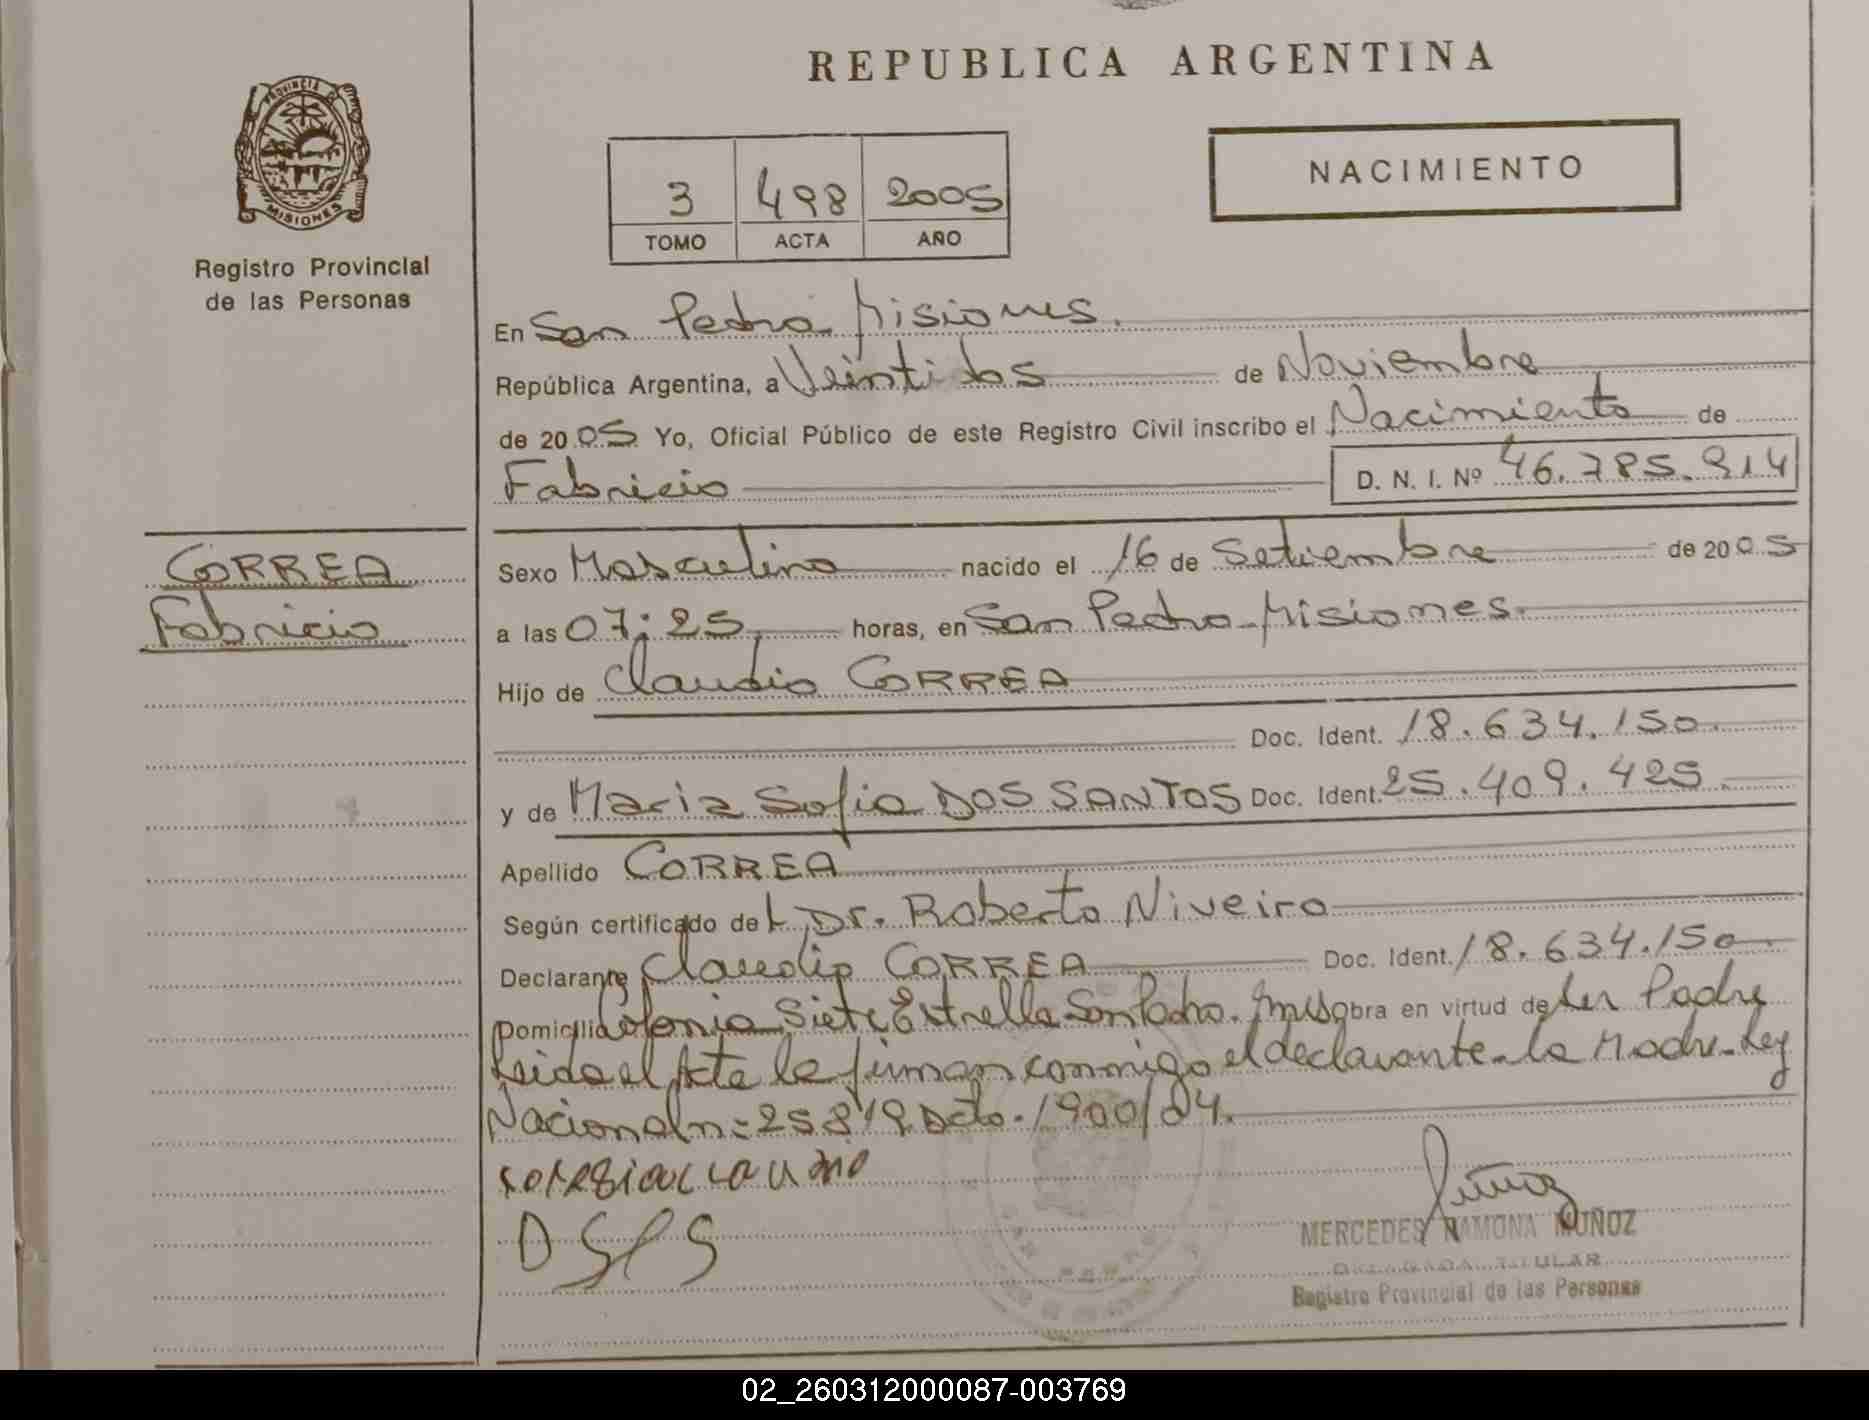 PROVINCIA DE
MISIONES
Registro Provincial
de las Personas
REPUBLICA ARGENTINA
NACIMIENTO
3 498 2005
TOMO ACTA AÑO
En San Pedro Misiones.
República Argentina, a Veintidos de Noviembre
de 2005 Yo, Oficial Público de este Registro Civil inscribo el Nacimiento de
Fabricio D. N. I. Nº 46.785.914
CORREA
Fabricio
Sexo Masculino nacido el 16 de Setiembre de 2005
a las 07:25 horas, en San Pedro Misiones.
Hijo de Claudio CORREA
Doc. Ident. 18.634.150.
y de Maria Sofia DOS SANTOS Doc. Ident. 25.409.425.
Apellido CORREA
Según certificado del Dr. Roberto Niveiro
Declarante Claudio CORREA Doc. Ident. 18.634.150.
Domicilio Colonia Siete Estrella San Pedro. Mnes obra en virtud de Ser Padre
Leida el Acta la firman conmigo el declarante-la Madre-Ley
Nacional n= 25819 Dcto. 1900/04.
D S P S
Muñoz
MERCEDES RAMONA MUÑOZ
DELEGADA TITULAR
Registro Provincial de las Personas
02_260312000087-003769